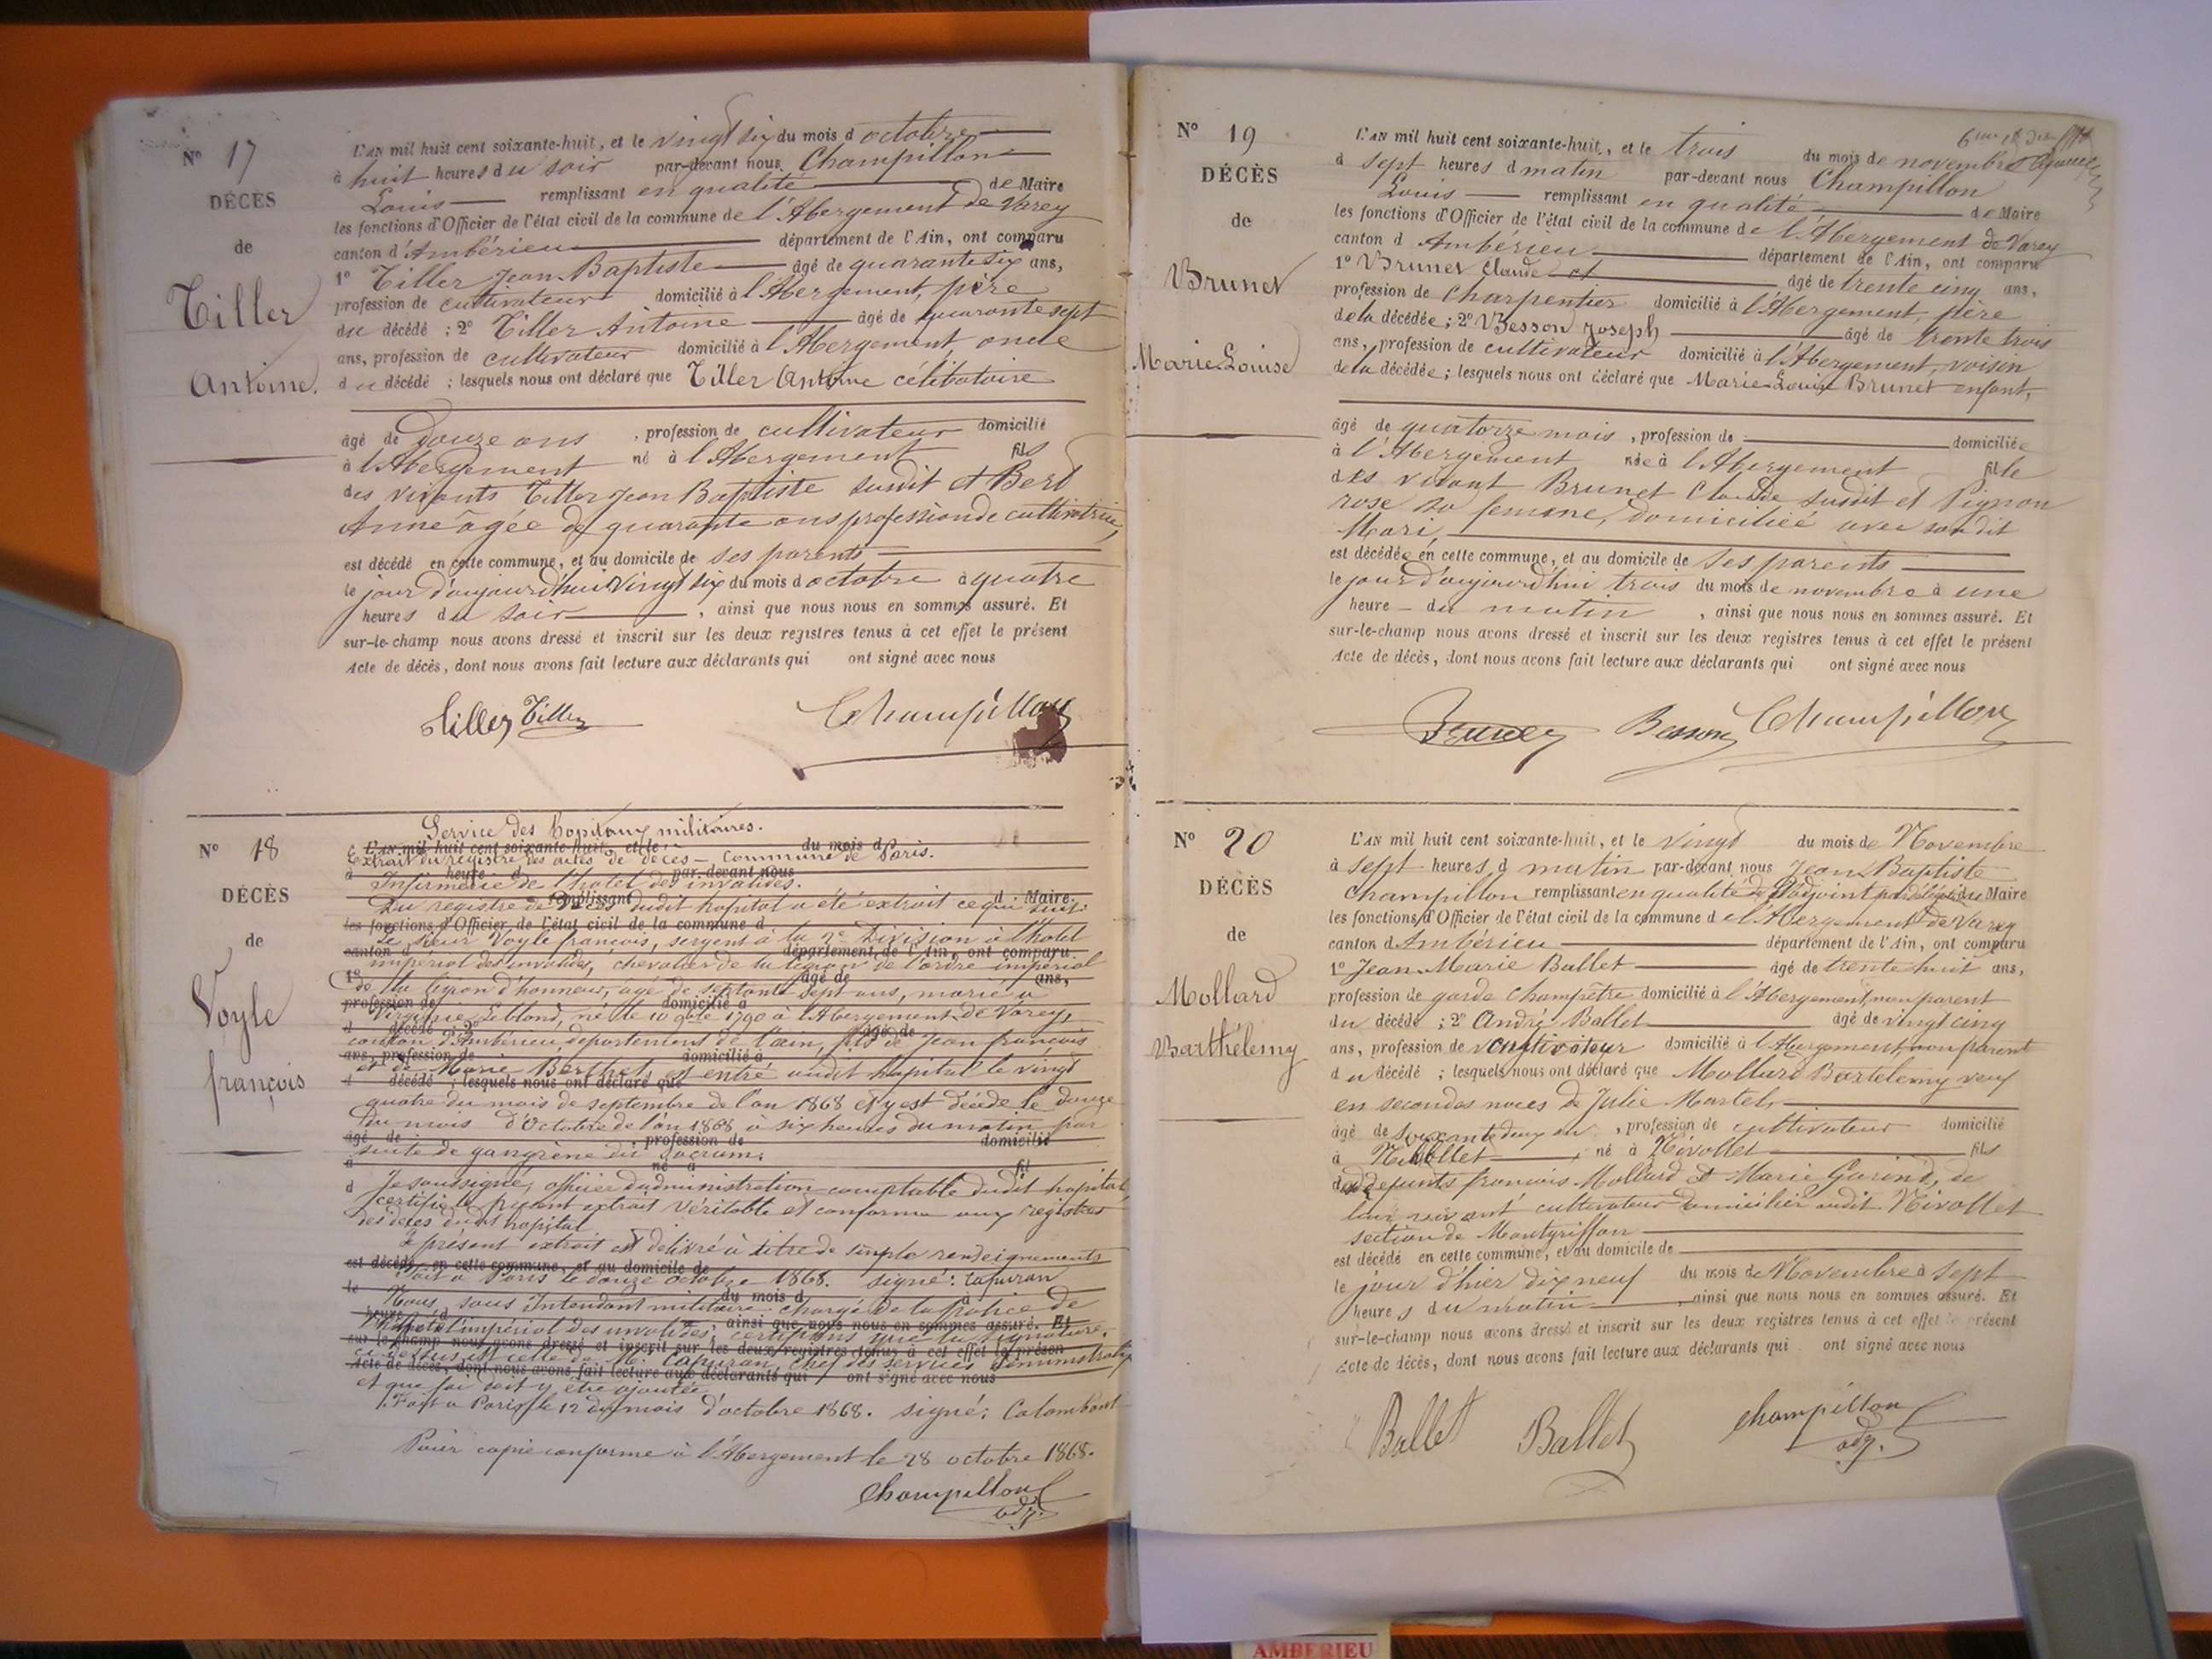 N° 17
DÉCÈS
de
Tiller
Antoine.
L'AN mil huit cent soixante-huit, et le vingt six du mois d octobre
à huit heures du soir par-devant nous Champillon
Louis remplissant en qualité de Maire
les fonctions d'Officier de l'état civil de la commune de l'Abergement de Varey
canton d'Ambérieu département de l'Ain, ont comparu
1° Tiller Jean Baptiste âgé de quarante six ans,
profession de cultivateur domicilié à l'Abergement, père
du décédé ; 2° Tiller Antoine âgé de quarante sept
ans, profession de cultivateur domicilié à l'Abergement oncle
du décédé ; lesquels nous ont déclaré que Tiller Antoine célibataire
âgé de douze ans , profession de cultivateur domicilié
à l'Abergement né à l'Abergement fils
des vivants Tiller Jean Baptiste susdit et Berd
Anne âgée de quarante ans profession de cultivatrice,
est décédé en cette commune, et au domicile de ses parents
le jour d'aujourd'hui vingt six du mois d octobre à quatre
heures du soir , ainsi que nous nous en sommes assuré. Et
sur-le-champ nous avons dressé et inscrit sur les deux registres tenus à cet effet le présent
Acte de décès, dont nous avons fait lecture aux déclarants qui ont signé avec nous
Tiller Tiller Champillon
N° 18
DÉCÈS
de
Voyle
françois
Service des hopitaux militaires.
L'AN mil huit cent soixante-huit, et le du mois d
Extrait du registre des actes de décès - Commune de Paris.
à heure d par-devant nous
Infirmerie de l'hotel des invalides.
remplissant d Maire
Du registre de décès dudit hopital a été extrait ce qui suit:
les fonctions d'Officier de l'état civil de la commune d
Le sieur Voyle françois, sergent à la 2e Division à l'hotel
canton d département de l'Ain, ont comparu
impérial des invalides, chevalier de la légion de l'ordre impérial
1° âgé de ans,
de la légion d'honneur, age de septante sept ans, marié a
profession de domicilié à
Virginie Leblond, né le 10 9bre 1790 à l'Abergement de Varey,
d décédé ; 2° âgé de
canton d'Ambérieu, département de l'ain, fils de Jean françois
ans, profession de domicilié à
et de Marie Berthet, est entré audit hopital le vingt
d décédé ; lesquels nous ont déclaré que
quatre du mois de septembre de l'an 1868 et y est décédé le douze
du mois d'Octobre de l'an 1868 à six heures du matin par
âgé de profession de domicilié
suite de gangrène du sacrum.
à né à fil
d Je soussigné, officier d'administration comptable dudit hopital,
certifie le présent extrait véritable et conforme aux registres
des décès dudit hopital
Le présent extrait est délivré à titre de simple renseignements
est décédé en cette commune, et au domicile de
Fait à Paris le douze octobre 1868. signé: Capuran
le du mois d à
Nous, sous Intendant militaire chargé de la police de
heure d , ainsi que nous nous en sommes assuré. Et
l'hotel impérial des invalides, certifions que la signature
sur-le-champ nous avons dressé et inscrit sur les deux registres tenus à cet effet le présen
ci-dessus est celle de Mr Capuran, chef des services administratifs
Acte de décès, dont nous avons fait lecture aux déclarants qui ont signé avec nous
et que foi doit y être ajoutée
Fait a Paris le 12 du mois d'octobre 1868. signé: Colombant
Pour copie conforme à l'Abergement le 28 octobre 1868.
Champillon
adj.
N° 19
DÉCÈS
de
Brunet
Marie Louise
L'AN mil huit cent soixante-huit, et le trois du mois de novembre
à sept heures d matin par-devant nous Champillon
Louis remplissant en qualité de Maire
les fonctions d'Officier de l'état civil de la commune de l'Abergement de Varey
canton d Ambérieu département de l'Ain, ont comparu
1° Brunet Claude âgé de trente cinq ans,
profession de charpentier domicilié à l'Abergement, père
de la décédée ; 2° Besson Joseph âgé de trente trois
ans, profession de cultivateur domicilié à l'Abergement, voisin
de la décédée ; lesquels nous ont déclaré que Marie Louise Brunet enfant,
âgé de quatorze mois , profession de domiciliée
à l'Abergement née à l'Abergement fille
des vivant Brunet Claude susdit et Pignon
rose sa femme, domiciliée avec son dit
Mari
est décédée en cette commune, et au domicile de ses parents
le jour d'aujourd'hui trois du mois de novembre à une
heure du matin , ainsi que nous nous en sommes assuré. Et
sur-le-champ nous avons dressé et inscrit sur les deux registres tenus à cet effet le présent
Acte de décès, dont nous avons fait lecture aux déclarants qui ont signé avec nous
Brunet Besson Champillon
N° 20
DÉCÈS
de
Mollard
Barthélemy
L'AN mil huit cent soixante-huit, et le vingt du mois de Novembre
à sept heures d matin par-devant nous Jean Baptiste
Champillon remplissant en qualité de d'adjoint par délég. du Maire
les fonctions d'Officier de l'état civil de la commune d el'Abergement de Varey
canton d'Ambérieu département de l'Ain, ont comparu
1° Jean Marie Ballet âgé de trente huit ans,
profession de garde champêtre domicilié à l'Abergement, non parent
du décédé ; 2° André Ballet âgé de vingt cinq
ans, profession de cultivateur domicilié à l'Abergement, non parent
du décédé ; lesquels nous ont déclaré que Mollard Bartelemy veuf
en secondes noces de Julie Martel,
âgé de soixante deux an , profession de cultivateur domicilié
à Nivollet né à Nivollet fils
des defunts francois Mollard et Marie Garind, de
leur vivant cultivateur domicilier audit Nivollet
section de Montgriffon
est décédé en cette commune, et au domicile de
le jour d'hier dix neuf du mois de Novembre à sept
heures du matin , ainsi que nous nous en sommes assuré. Et
sur-le-champ nous avons dressé et inscrit sur les deux registres tenus à cet effet le présent
Acte de décès, dont nous avons fait lecture aux déclarants qui ont signé avec nous
Ballet Ballet Champillon
adj.
AMBERIEU